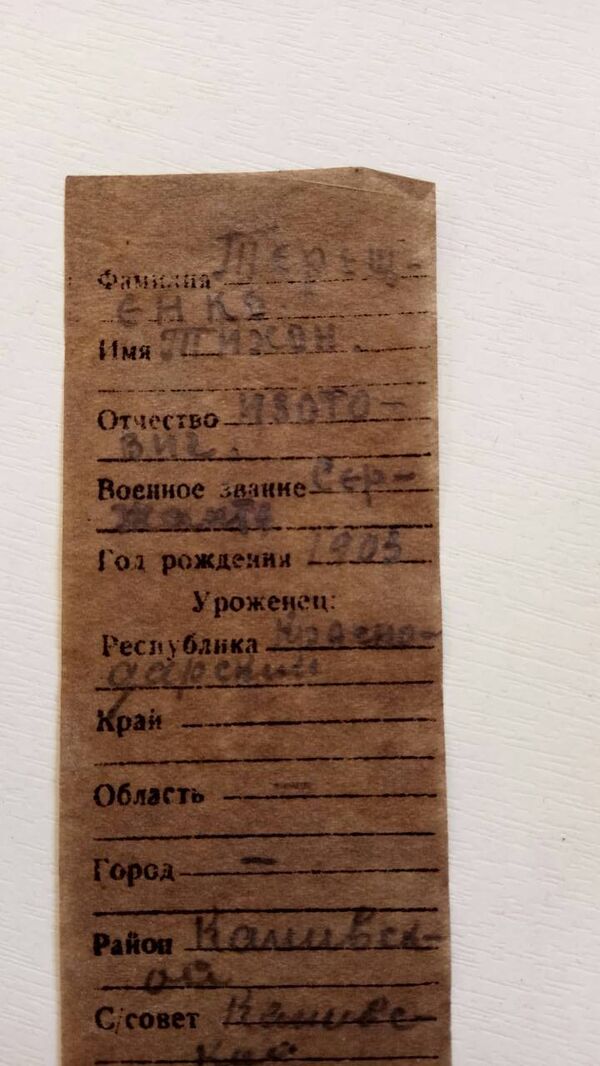 Фамилия Терещ-
енко
Имя Тихон.
Отчество Изото-
вич.
Военное звание Сер-
жант
Год рождения 1903
Уроженец:
Республика Красно-
дарский
Край
Область —
Город —
Район
С/совет